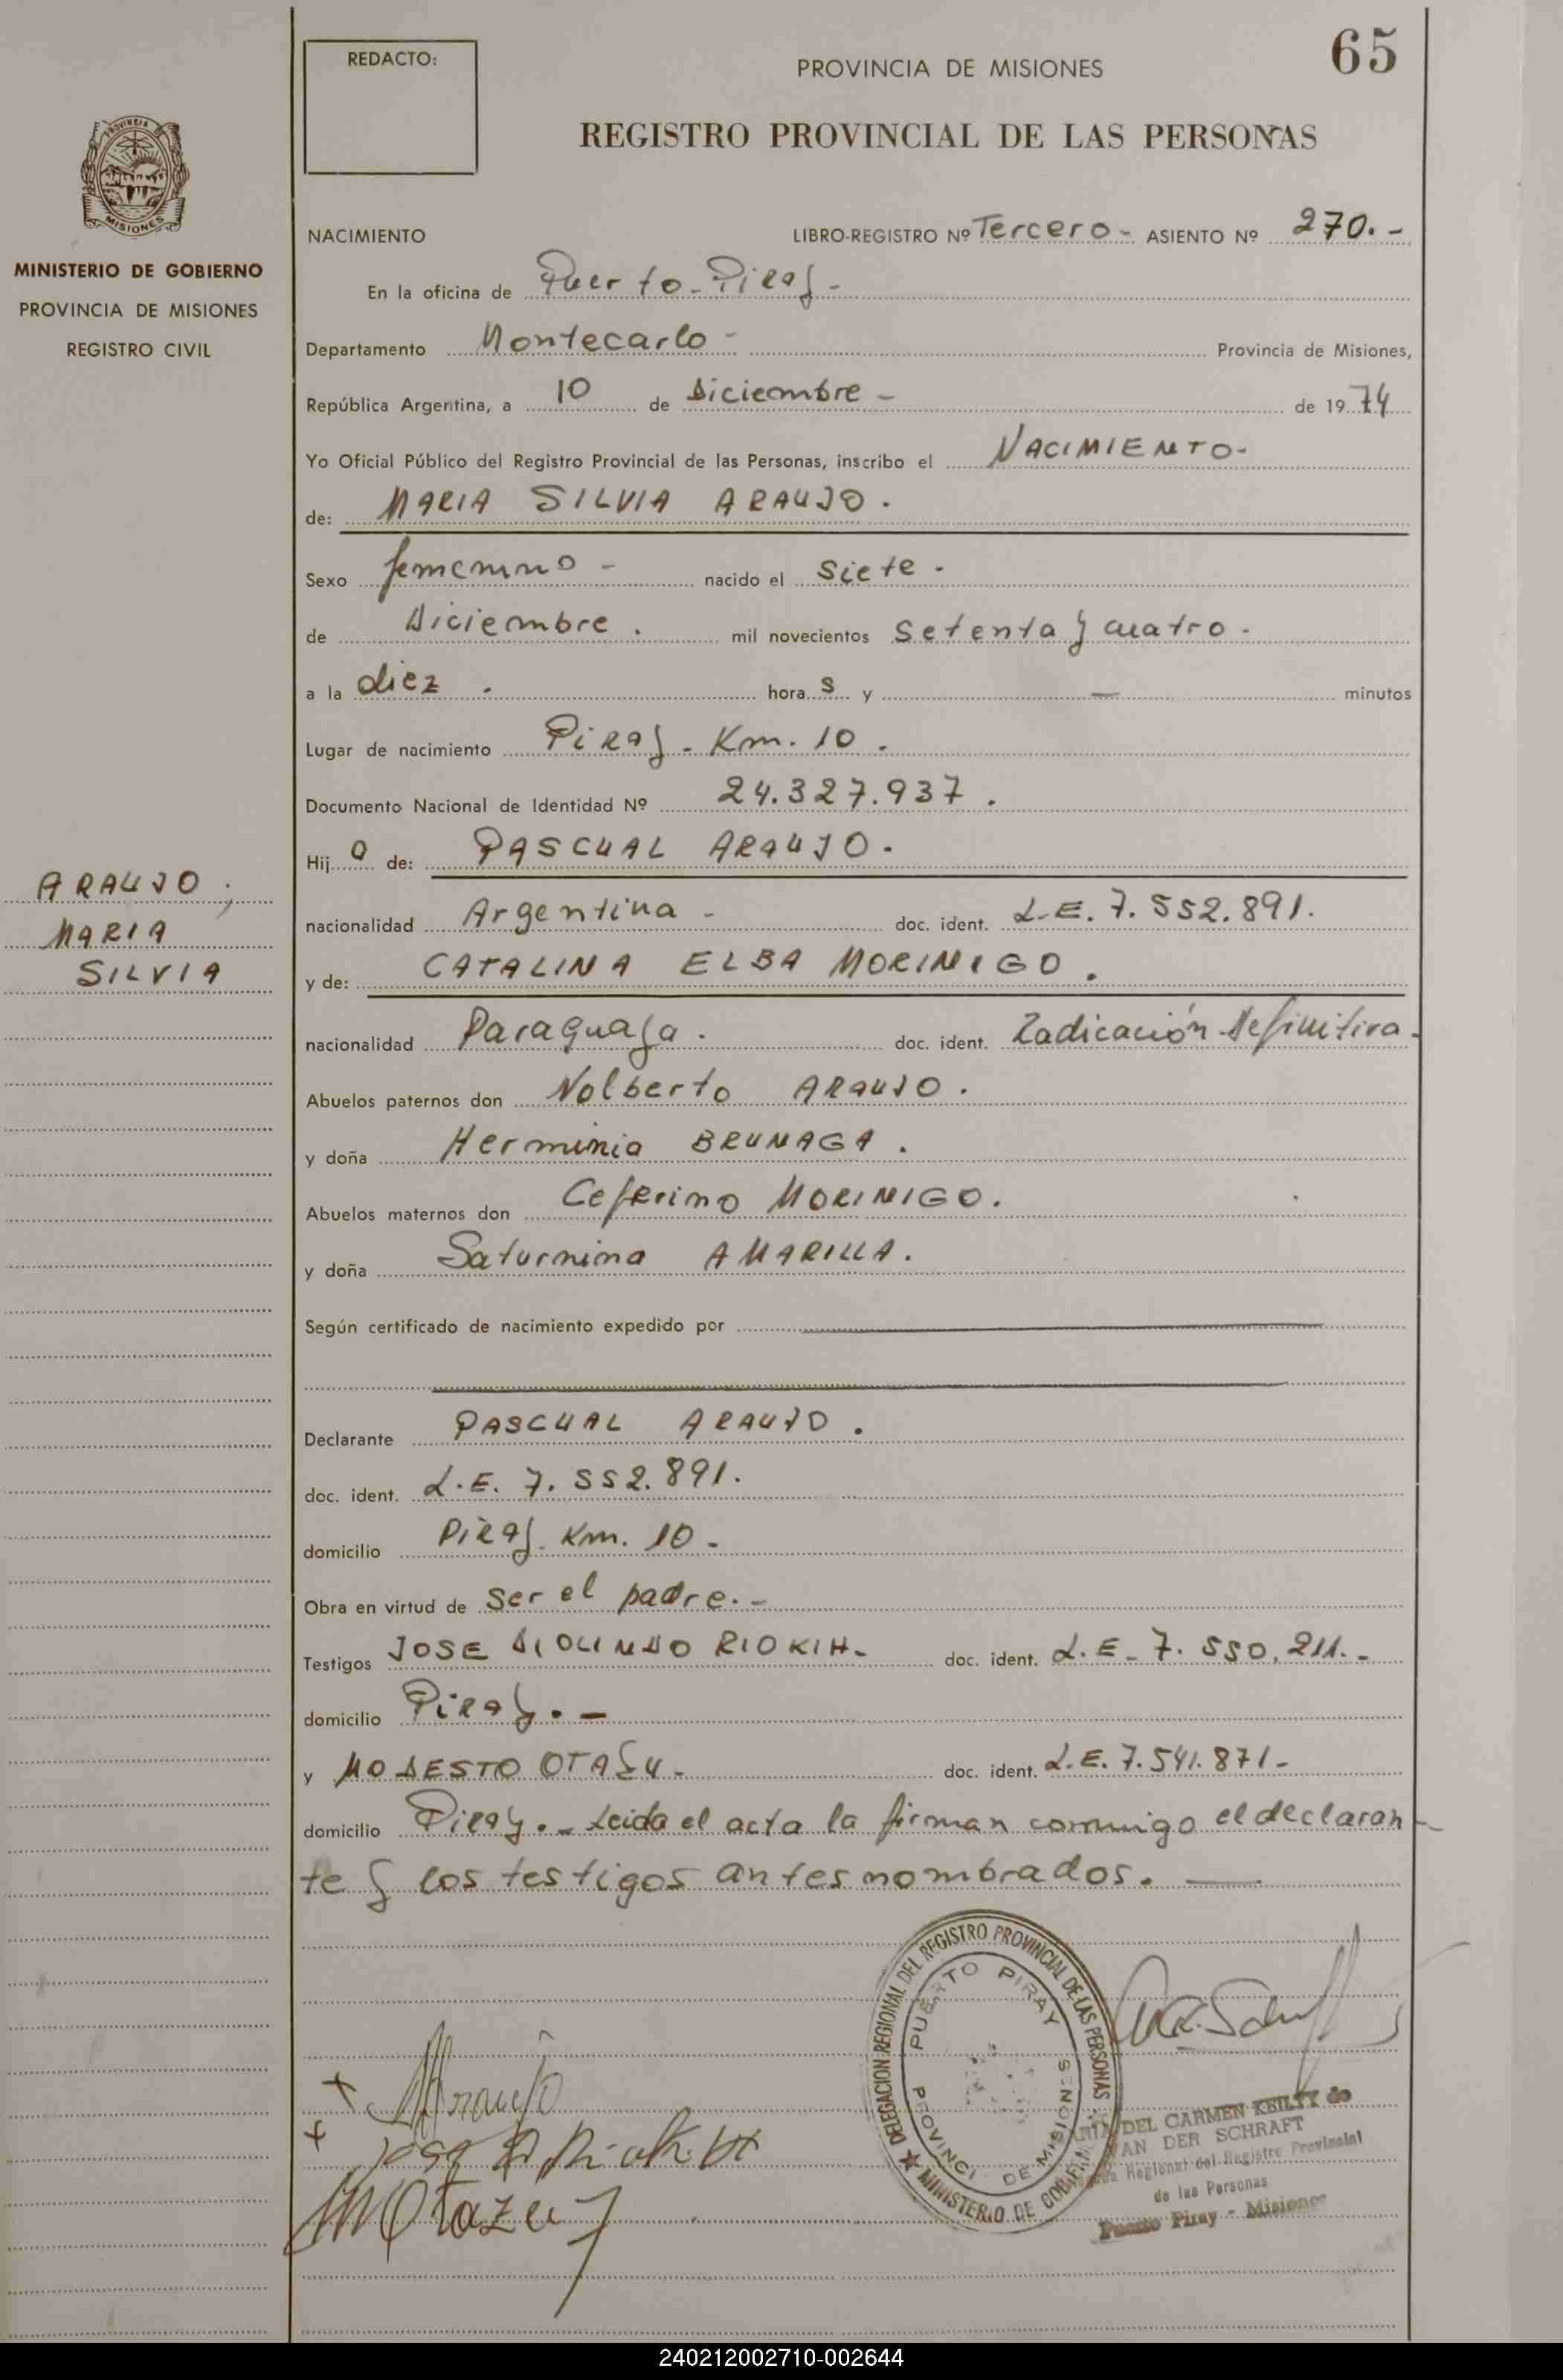 65
REDACTO:
PROVINCIA DE MISIONES
REGISTRO PROVINCIAL DE LAS PERSONAS
PROVINCIA
MISIONES
MINISTERIO DE GOBIERNO
PROVINCIA DE MISIONES
REGISTRO CIVIL
NACIMIENTO LIBRO-REGISTRO Nº Tercero - ASIENTO Nº 270. -
En la oficina de Puerto - Piray -
Departamento Montecarlo - Provincia de Misiones,
República Argentina, a 10 de Diciembre - de 19 74
Yo Oficial Público del Registro Provincial de las Personas, inscribo el NACIMIENTO-
de: MARIA SILVIA ARAUJO.
Sexo femenino - nacido el Siete.
de Diciembre. mil novecientos setenta y cuatro.
a la diez. hora s y — minutos
Lugar de nacimiento Piray - Km. 10.
Documento Nacional de Identidad Nº 24.327.937.
Hij a de: PASCUAL ARAUJO.
ARAUJO,
MARIA
SILVIA
nacionalidad Argentina - doc. ident. L.E. 7.552.891.
y de: CATALINA ELBA MORINIGO.
nacionalidad Paraguaya. doc. ident. Radicación Definitiva.
Abuelos paternos don Nolberto ARAUJO.
y doña Herminia BRUNAGA.
Abuelos maternos don Ceferino MORINIGO.
y doña Saturnina AMARILLA.
Según certificado de nacimiento expedido por
Declarante PASCUAL ARAUJO.
doc. ident. L.E. 7.552.891.
domicilio Piray. Km. 10 -
Obra en virtud de ser el padre. -
Testigos JOSE DIOLINDO RIOKIH- doc. ident. L.E. 7.550.211. -
domicilio Piray. -
y MODESTO OTASU - doc. ident. L.E. 7.541.871 -
domicilio Piray. - Leida el acta la firman conmigo el declaran
te y los testigos antes nombrados. —
DELEGACION REGIONAL DEL REGISTRO PROVINCIAL DE LAS PERSONAS
PUERTO PIRAY
PROVINCI DE MISIONES
MINISTERIO DE GOBIERN
Araujo
MOtazu
DEL CARMEN KEILTY de
VAN DER SCHRAFT
Regional del Registro Provincial
de las Personas
Puerto Piray - Misiones
240212002710-002644